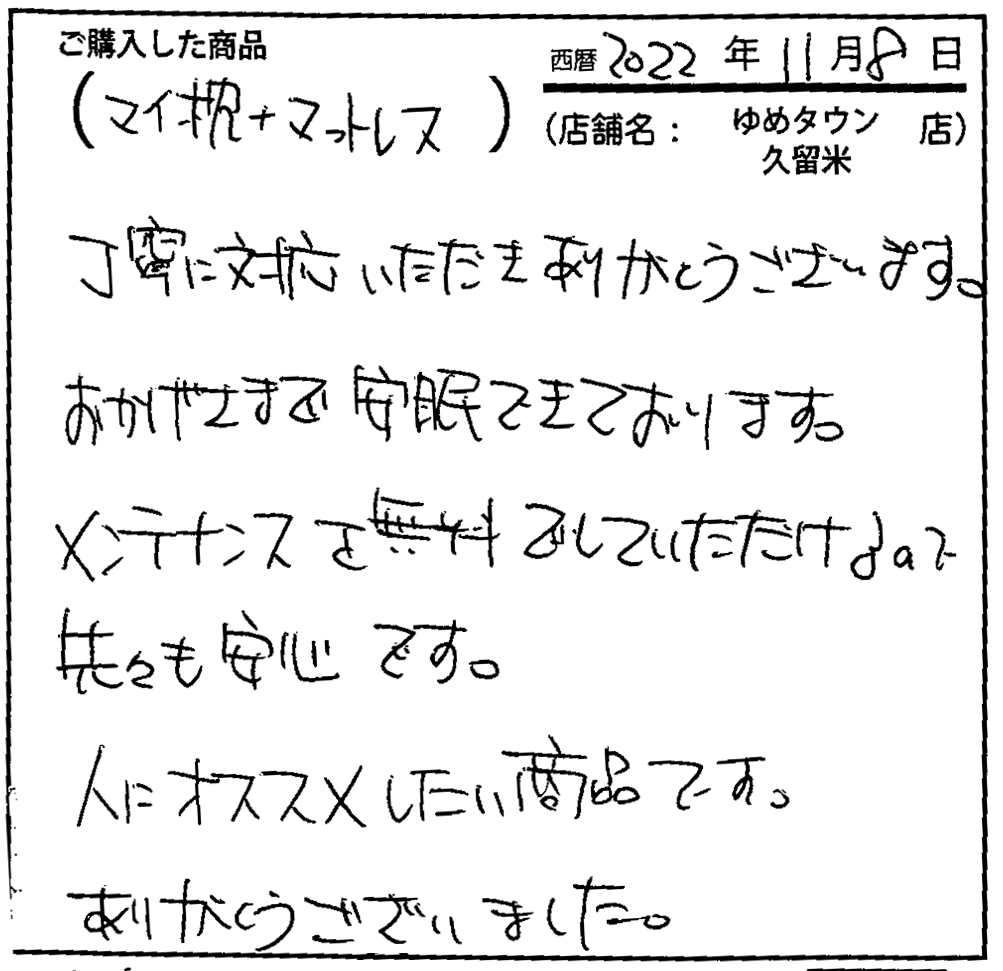 ご購入した商品
西暦 2022 年 11 月 8 日
(マイ枕+マットレス)
(店舗名: ゆめタウン 店)
久留米
丁寧に対応いただきありがとうございます。
おかげさまで安眠できております。
メンテナンスを無料でしていただけるので
先々も安心です。
人にオススメしたい商品です。
ありがとうございました。